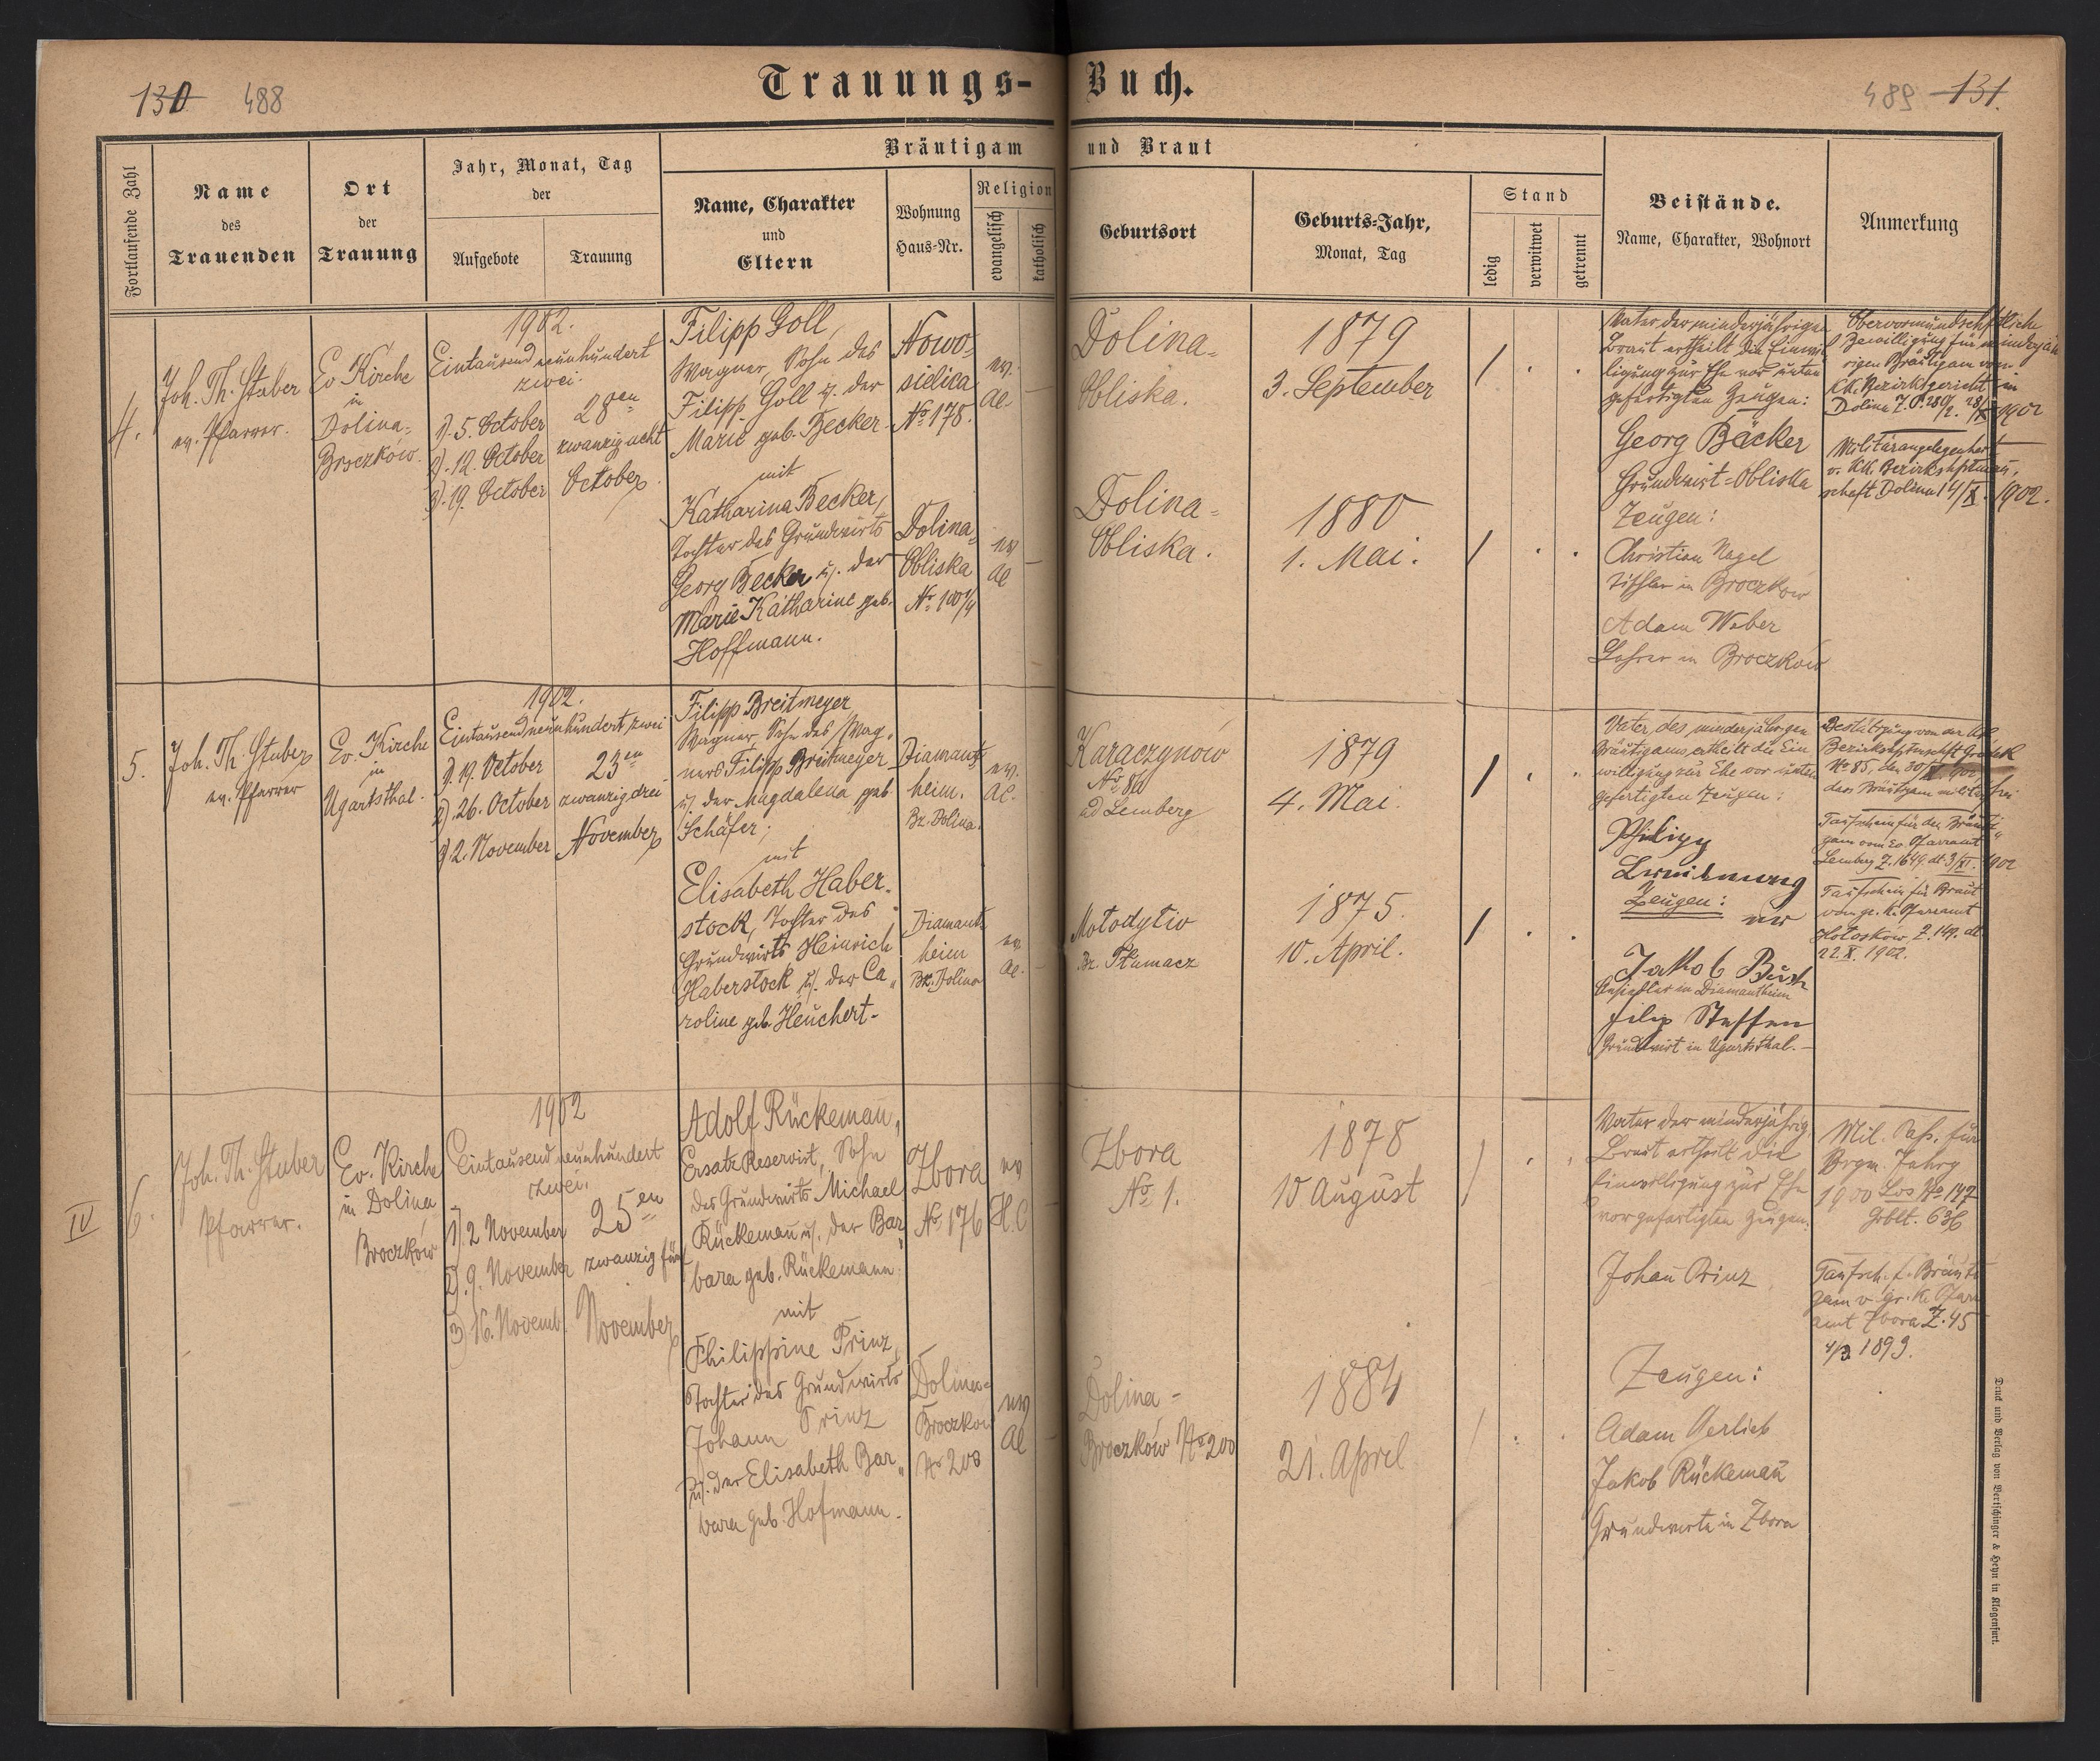 130 488
Trauungs-Buch.
489 131.
Fortlaufende Zahl
Name
des
Trauenden
Ort
der
Trauung
Jahr, Monat, Tag
der
Aufgebote
Trauung
Bräutigam und Braut
Name, Charakter
und
Eltern
Wohnung
Haus-Nr.
Religion
evangelisch
katholisch
Geburtsort
Geburts-Jahr,
Monat, Tag
Stand
ledig
verwitwet
getrennt
Beistände.
Name, Charakter, Wohnort
Anmerkung
4.
Joh. Th. Stuber
ev. Pfarrer.
Ev Kirche
in
Dolina-
Broczków.
1902.
Eintausend neunhundert
zwei.
1). 5. October
2). 12. October
3). 19. October
28en
zwanzig acht
October
Filipp Goll,
Wagner, Sohn des
Filipp Goll u. der
Marie geb. Becker
mit
Katharina Becker,
Tochter des Grundwirts
Georg Becker u. der
Marie Katharine geb.
Hoffmann.
Nowo-
sielica
No 178.
Dolina-
Obliska
No 100/4
ev.
AC.
ev
AC
Dolina-
Obliska.
Dolina-
Obliska.
1879
3. September
1880
1. Mai.
Vater der minderjährigen
Braut ertheilt die Einwil
ligung zur Ehe vor unten
gefertigten Zeugen:
Georg Bäcker
Grundwirt-Obliska
Zeugen:
Christian Nagel
Tischler in Broczków
Adam Weber
Lehrer in Broczków
Obervormundschftliche
Bewilligung für minderjäh
rigen Bräutigam vom
K.K. Bezirksgericht in
Dolina
1902
Militärangelegenheit
v. KK. Bezirkshptman,
schaft Dolina 14/X. 1902.
5.
Joh. Th. Stuber
ev. Pfarrer
Ev. Kirche
in
Ugartsthal.
1902.
Eintausend neunhundert zwei
1). 19. October
2). 26. October
3). 2. November
23en
zwanzig drei
November
Filipp Breitmeyer
Wagner, Sohn des Wag-
ners Filipp Breitmeyer
u. der Magdalena geb.
Schäfer;
mit
Elisabeth Haber-
stock, Tochter des
Grundwirts Heinrich
Haberstock u. der Ca"
roline geb Heuchert-
Diamant-
heim.
Bz. Dolina.
Diamant-
heim
Bz. Dolina
ev.
AC.
ev.
AC.
Karaczynów
No 80
ad Lemberg
Mołodyłiv
Bz. Tłumacz
1879
4. Mai.
1875.
10. April.
Vater des minderjährigen
Bräutigams ertheilt die Ein
willigung zur Ehe vor unten
gefertigten Zeugen:
Zeugen:
Jakob Bush
Ansiedler in Diamantheim
Filip Steffen
Grundwirt in Ugartsthal.-
Bestätigung von der KK
Bezirkshptmschft Gródek
No 85, den
dass Bräutigam militärfrei
Taufschein für den Bräuti"
gam vom Ev. Pfarramt
Lemberg Z. 1649. dt. 3/XI. 1902
Taufschein für Braut
vom gr. K. Pfarramt
Hołosków, Z. 149. dt.
22. X. 1902.
IV
6.
Joh. Th. Stuber
Pfarrer.
Ev. Kirche
in Dolina
Broczków
1902
Eintausend neunhundert
zwei.
1) 2 November
2). 9. November
3) 16. Novemb.
25en
zwanzig fünf
November
Adolf Rückeman,
Ersatz Reservist, Sohn
des Grundwirts Michael
Rückeman u. der Bar"
bara geb. Rückemann.
mit
Philippine Prinz,
Tochter des Grundwirts
Johann Prinz
u. der Elisabeth Bar"
bara geb. Hofmann.
Zbora
No 176
Dolina-
Broczków
No 200
ev
H.C
ev
AC
Zbora
No 1.
Dolina-
Broczków No 200
1878
10 August
1884
21. April
Vater der minderjährig.
Braut ertheilt die
Einwilligung zur Ehe
vor gefertigten Zeugen.
Johan Prinz
Zeugen:
Adam Gerlieb
Jakob Rückeman
Grundwirte in Zbora
Mil. Paß. für
Jahrg
1900 Los No 147
Taufsch. f. Bräuti
gam v. gr. K. Pfarr
amt Zbora Z. 45
4/3 1893.
Druck und Verlag von Bertschinger & Heyn in Klagenfurt.